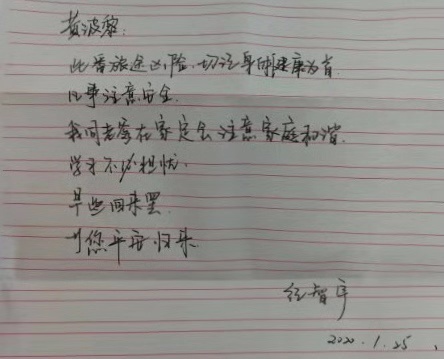 黄波黎:
此番旅途凶险,切注身体健康为首
凡事注意安全.
我同老爹在家定会注意家庭和谐.
学习不必担忧.
早些回来罢.
盼您平安归来
智宇
2020.1.25